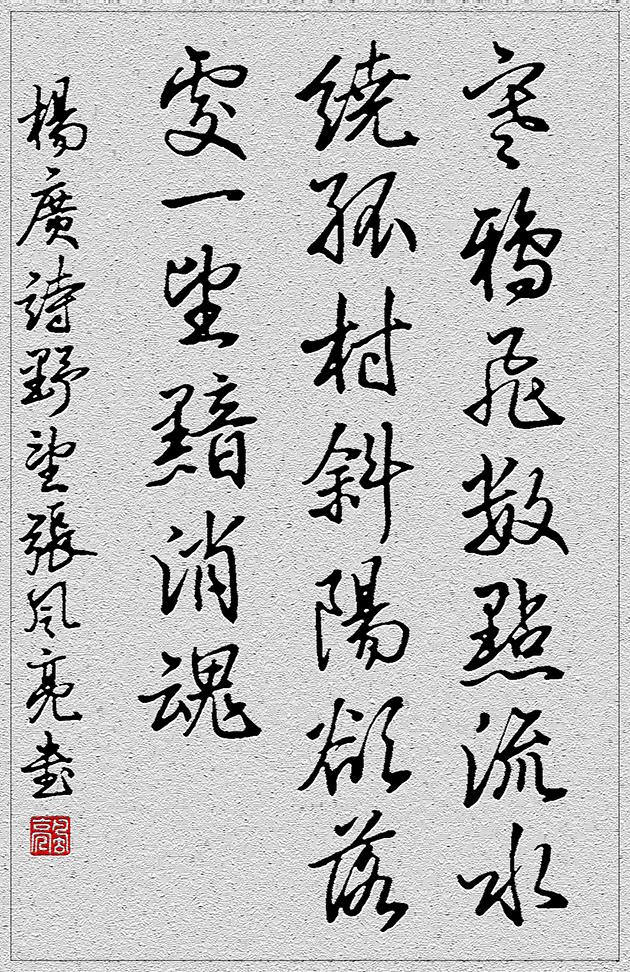 寒鴉飛數點流水
繞孤村斜陽欲落
處一望黯消魂
楊廣詩野望張風亮書